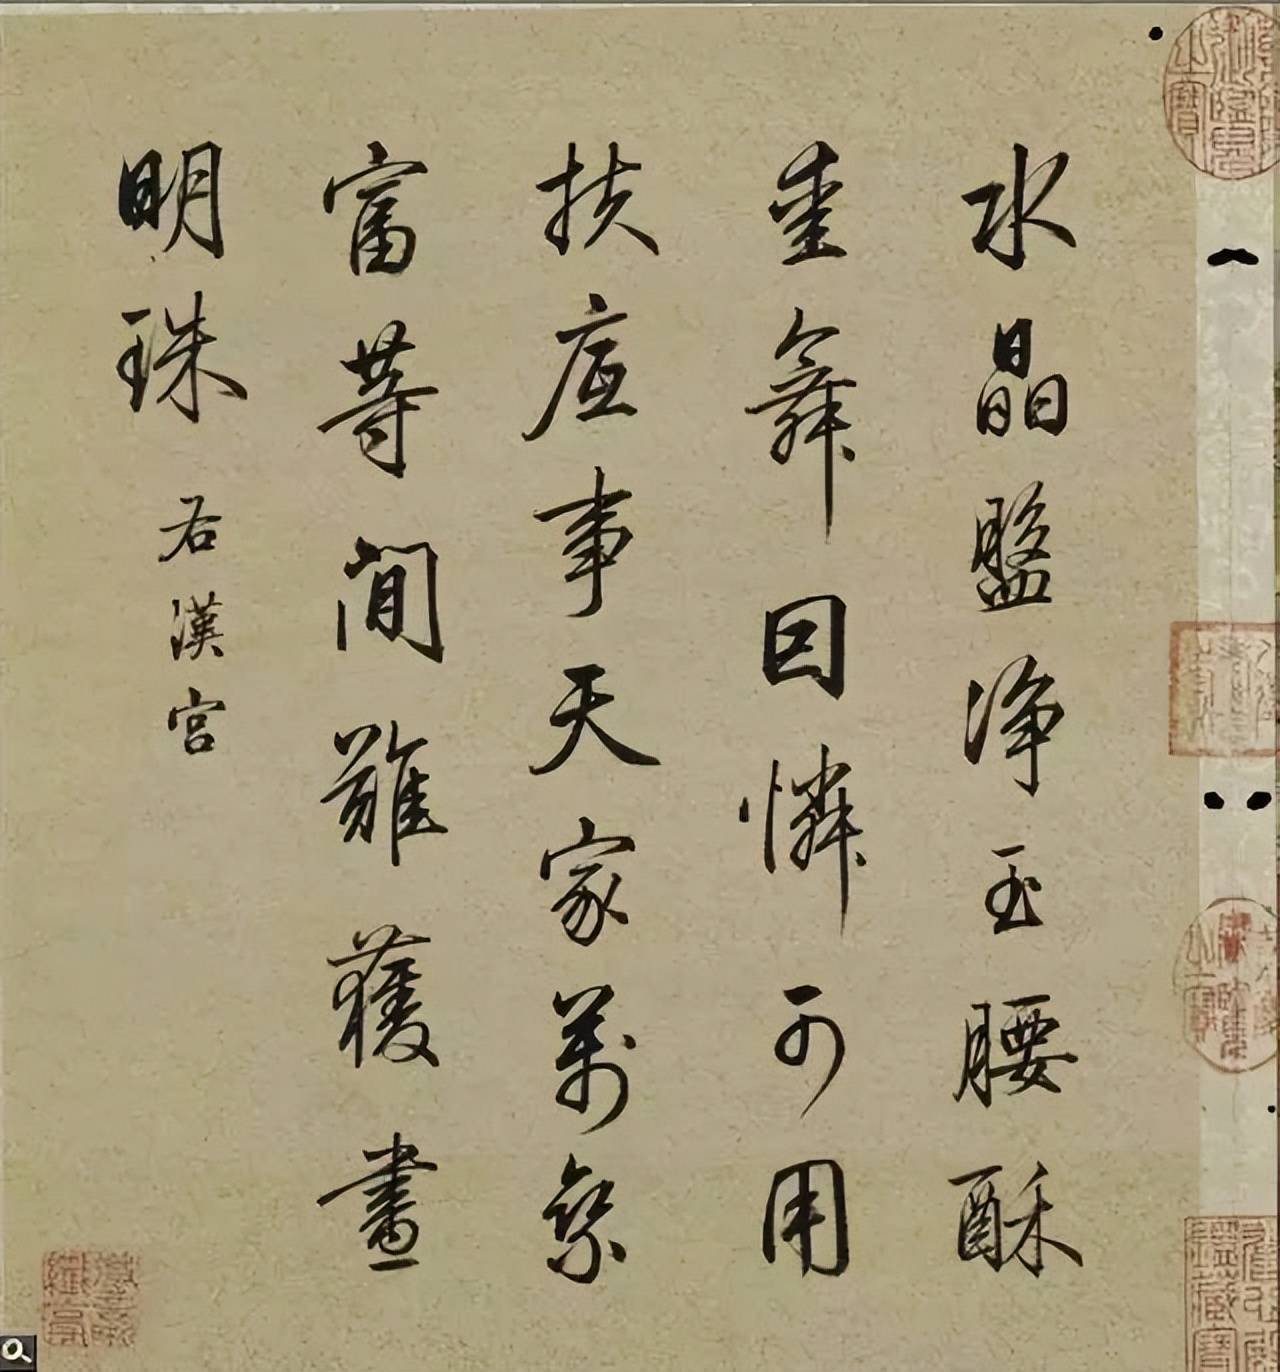 水晶盤净玉腰酥
重舞回憐可用
扶应事天家萬繁
富等間難獲畫
明珠 右漢宫